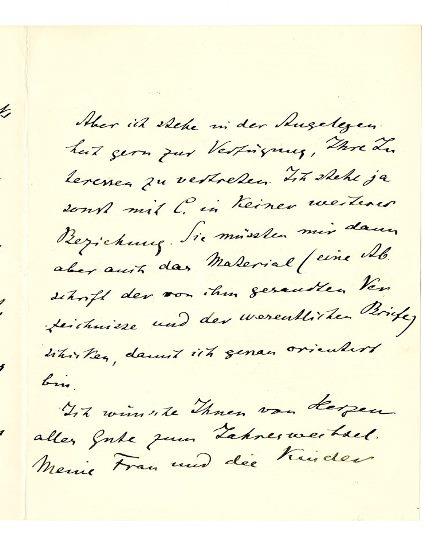 Aber ich stehe in der Angelegen
heit gern zur Verfügung, Ihre In
teressen zu vertreten. Ich stehe ja
sonst mit C. in keiner weiteren
Beziehung. Sie müssten mir dann
aber auch das Material (eine Ab
schrift der von ihm gesandten Ver
zeichnisse und der wesentlichen Briefe)
schicken, damit ich genau orientiert
bin.
Ich wünsche Ihnen von Herzen
alles Gute zum Jahreswechsel.
Meine Frau und die Kinder